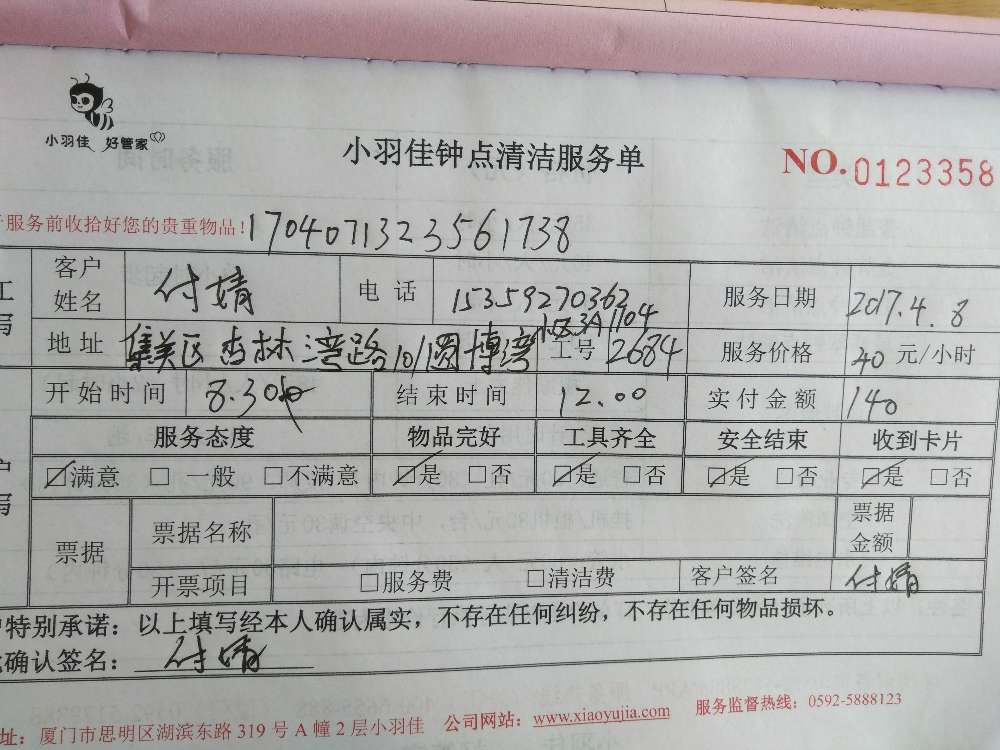 小羽佳 好管家
小羽佳钟点清洁服务单
NO.0123358
服务前收拾好您的贵重物品!1704071323561738
客户姓名 付婧 电话 15359270362 服务日期 2017.4.8
地址 集美区杏林湾路101圆博湾小区3A1104 工号 2684 服务价格 40元/小时
开始时间 8.30 结束时间 12.00 实付金额 140
服务态度 物品完好 工具齐全 安全结束 收到卡片
☑满意 □一般 □不满意 ☑是 □否 ☑是 □否 ☑是 □否 ☑是 □否
票据 票据名称 票据金额
开票项目 □服务费 □清洁费 客户签名 付婧
户特别承诺：以上填写经本人确认属实，不存在任何纠纷，不存在任何物品损坏。
确认签名：付婧
址：厦门市思明区湖滨东路319号A幢2层小羽佳 公司网站：www.xiaoyujia.com 服务监督热线：0592-5888123